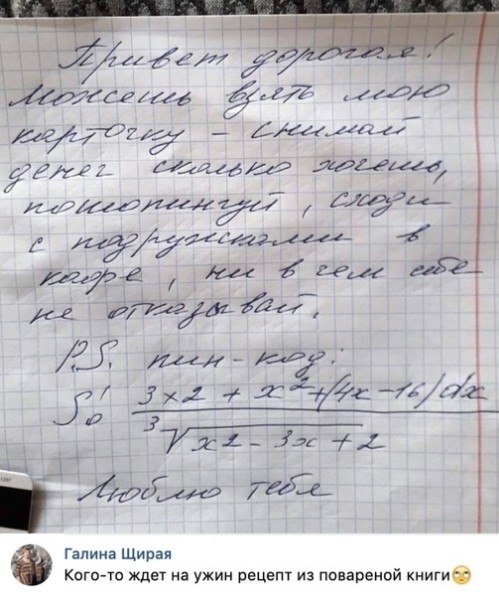 Привет дорогая!
Можешь взять мою
карточку - снимай
денег сколько хочешь,
пошопингуй, сходи
с подружками в
кафе, ни в чем себе
не отказывай.
P.S. пин-код:
∫₀¹ 3×2 + x² + (4x - 16) dx
³√x2 - 3x + 2
Люблю тебя
Галина Щирая
Кого-то ждет на ужин рецепт из повареной книги🙄